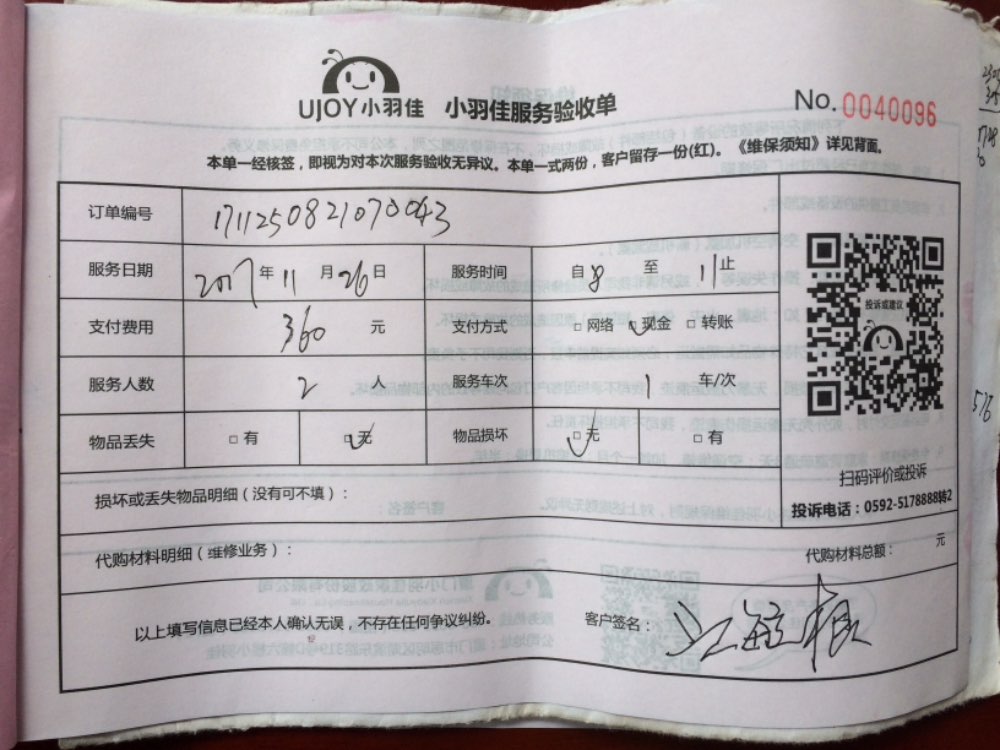 UJOY小羽佳 小羽佳服务验收单 No.0040096
本单一经核签，即视为对本次服务验收无异议。本单一式两份，客户留存一份(红)。《维保须知》详见背面。
订单编号 1711250821070043
服务日期 2017年11月26日 服务时间 自8至11止
支付费用 360元 支付方式 □网络 □现金 □转账
服务人数 2人 服务车次 1车/次
物品丢失 □有 □无 物品损坏 □无 □有
投诉或建议
扫码评价或投诉
投诉电话：0592-5178888转2
损坏或丢失物品明细（没有可不填）：
代购材料明细（维修业务）： 代购材料总额： 元
以上填写信息已经本人确认无误，不存在任何争议纠纷。 客户签名：
576